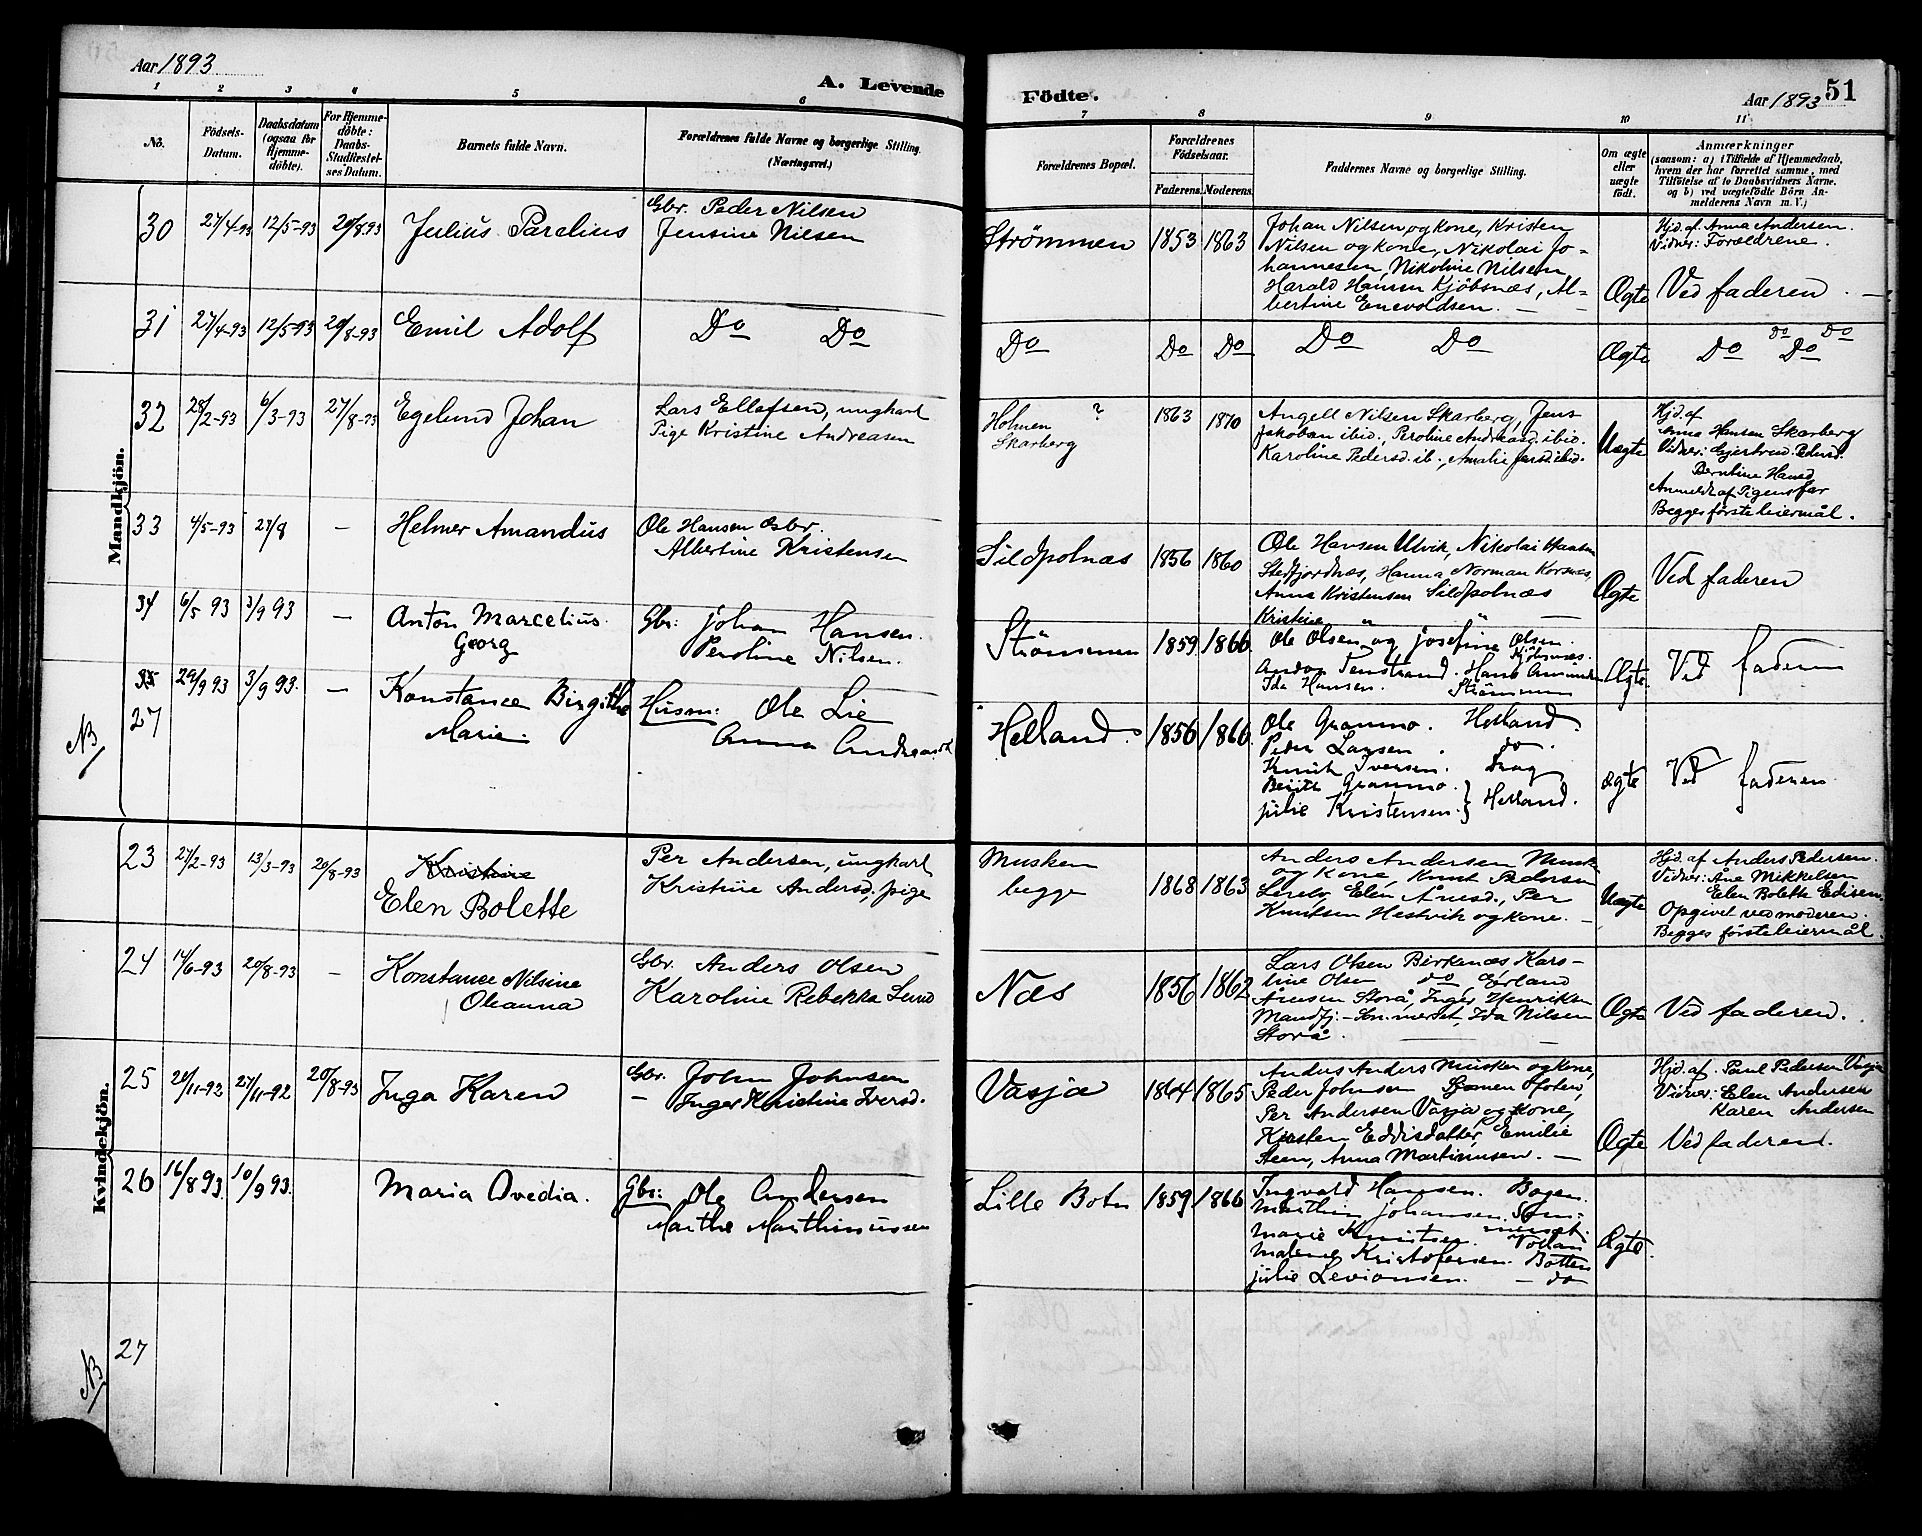 Aar 1893
A. Levende
1 2 3 4 5 6
No.
Födsels-
Datum.
Daabsdatum
(ogsaa för
Hjemme-
döbte).
For Hjemme-
döbte:
Daabs-
Stadfæstel-
ses Datum.
Barnets fulde Navn.
Forældrenes fulde Navne og borgerlige Stilling.
(Næringsvei.)
Mandkjön.
30 27/4-93 12/5-93 20/8.93 Julius Parelius
Gbr. Peder Nilsen
Jensine Nilsen
31 27/4-93 12/5-93 20/8-93 Emil Adolf Do Do
32 28/2-93 6/3-93 27/8-93 Egelund Johan
Lars Ellefsen, ungkarl
Pige Kristine Andreasen
33 4/5-93 27/8 — Helmer Amandus
Ole Hansen Gsbr.
Albertine Kristensen
34 6/5 93 3/9 93 — Anton Marcelius
Georg
Gbr: Johan Hansen.
Peroline Nilsen.
35 29/9 93 3/9 93. — Konstance Birgithe
27
Marie.
Husm: Ole Lie
Anna
NB
Kvindekjön.
23 27/2-93 13/3-93 20/8-93 Kristine
Elen Bolette
Per Andersen, ungkarl
Kristine Andersd, pige
24 14/6-93 20/8-93 — Konstance Nilsine
Oleanna
Gbr. Anders Olsen
Karoline Rebekka Lund
25 20/11-92 27/11-92 20/8-93 Inga Karen
Gbr. John Johnsen
— Inger Kristine Iversd.
26 16/8 93. 10/9 93. Maria Ovedia.
Gbr: Ole Andersen
Marthe Marthinussen
27
NB
Födte.
Aar 1893 51
7 8 9 10 11
Forældrenes Bopæl.
Forældrenes
Födselsaar.
Faderens. Moderens.
Faddernes Navne og borgerlige Stilling.
Om ægte
eller
uægte
födt.
Anmærkninger
(saasom: a) i Tilfælde af Hjemmedaab,
hvem der har forrettet samme, med
Tilföielse af to Daabsvidners Navne,
og b) ved uægtefödte Börn An-
melderens Navn m. V.)
Strömmen 1853 1863
Johan Nilsen og kone, Kristen
Nilsen og kone, Nikolai Jo-
hannesen, Nikoline Nilsen
Harald Hansen Kjöbsnæs, Al-
bertine Enevoldsen. —
Ægte
Hjd. af Anna Andersen.
Vidner: Forældrene.
Ved faderen. —
Do Do Do Do Do Ægte Do Do Do Do
Holmen ?
Skarberg
1863 1870
Angell Nilsen Skarberg, Jens
Jakobsen ibid., Peroline Andreasd. ibid.
Karoline Pedersd. ib., Amalie ibid.
Uægte
Hjd. af
Anna Hansen Skarberg
Vidner:
Berntine Hansd
Anmeldt af Pigens far
Begges förste leiermål.
Sildpolnæs 1856 1860
Ole Hansen Ulvik, Nikolai Hansen
Stedfjordnæs, Hanna Norman Korsnæs,
Anna Kristensen Sildpolnæs
Kristine " "
Ægte Ved faderen
Strömmen 1859 1866
Ole Olsen og Josefine Olsen.
Kjöbsnæs.
Tenstrand. Hans
Ida Hansen. Strömmen
Ægte. Ved faderen
Helland. 1856 1866
Ole Gramno. Helland.
Peder Larsen. do.
Knut Iversen. Drag
Gramno.
Julie Kristensen. } Helland.
ægte Ved faderen.
Musken
begge
1868 1863
Anders Andersen Musk
og kone, Knut Pedersen
Elen Ånesd., Per
Knutsen Hestvik og kone. —
Uægte
Hjd. af Anders Pedersen.
Vidner: Åne Mikkelsen
Elen Bolette Edisen.
Opgivet ved moderen.
Begges förste leiermål.
Næs 1856 1862
Lars Olsen Birkenæs Karo-
line Olsen do, Erland
Årnesen Storå, Inger Henriksen
Ida Nilsen
Storå. —
Ægte Ved faderen.
Vasja 1864 1865
Anders Anders Musken og kone,
Peder Johnsen Ofoten,
Per Andersen Vasja og kone,
Kirsten Eddisdatter, Emilie
Steen, Anna Martinusen. —
Ægte
Hjd. af. Paul Pedersen Vasja
Vidner: Elen Andersen
Karen Andersen
Ved faderen.
Lille Botn 1859 1866
Ingvald Hansen. Bogen.
Marthin Johansen. Söm-
Marie Knutsen. merset.
Malene Kristofersen. Botten
Julie Levionsen. — do
Ægte.